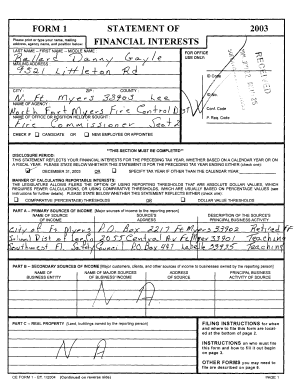 FORM 1 STATEMENT OF 2003
Please print or type your name, mailing address, agency name, and position below: FINANCIAL INTERESTS
LAST NAME -- FIRST NAME -- MIDDLE NAME FOR OFFICE USE ONLY:
Ballard Danny Gayle
MAILING ADDRESS
9321 Littleton Rd
ID Code
CITY ZIP COUNTY
N. Ft Myers 33903 Lee
ID No.
NAME OF AGENCY
North Fort Myers Fire Control Dist
Conf. Code
NAME OF OFFICE OR POSITION HELD OR SOUGHT
Fire Commissioner Seat 2
P. Req. Code
CHECK IF CANDIDATE OR NEW EMPLOYEE OR APPOINTEE
**THIS SECTION MUST BE COMPLETED**
DISCLOSURE PERIOD:
THIS STATEMENT REFLECTS YOUR FINANCIAL INTERESTS FOR THE PRECEDING TAX YEAR, WHETHER BASED ON A CALENDAR YEAR OR ON
A FISCAL YEAR. PLEASE STATE BELOW WHETHER THIS STATEMENT IS FOR THE PRECEDING TAX YEAR ENDING EITHER (check one):
DECEMBER 31, 2003 OR SPECIFY TAX YEAR IF OTHER THAN THE CALENDAR YEAR:
MANNER OF CALCULATING REPORTABLE INTERESTS:
THE LEGISLATURE ALLOWS FILERS THE OPTION OF USING REPORTING THRESHOLDS THAT ARE ABSOLUTE DOLLAR VALUES, WHICH
REQUIRES FEWER CALCULATIONS, OR USING COMPARATIVE THRESHOLDS, WHICH ARE USUALLY BASED ON PERCENTAGE VALUES (see
instructions for further details). PLEASE STATE BELOW WHETHER THIS STATEMENT REFLECTS EITHER (check one):
COMPARATIVE (PERCENTAGE) THRESHOLDS OR DOLLAR VALUE THRESHOLDS
PART A -- PRIMARY SOURCES OF INCOME [Major sources of income to the reporting person]
NAME OF SOURCE OF INCOME SOURCE'S ADDRESS DESCRIPTION OF THE SOURCE'S PRINCIPAL BUSINESS ACTIVITY
City of Ft Myers P.O. Box 2217 Ft Myers 33902 Retired FF
School Dist of Lee 2055 Central Av Ft Myers 33901 Teaching
Southwest Fl. Safety Council PO Box 491 Labelle 33935 Teaching
PART B -- SECONDARY SOURCES OF INCOME [Major customers, clients, and other sources of income to businesses owned by the reporting person]
NAME OF BUSINESS ENTITY NAME OF MAJOR SOURCES OF BUSINESS' INCOME ADDRESS OF SOURCE PRINCIPAL BUSINESS ACTIVITY OF SOURCE
N A
PART C -- REAL PROPERTY [Land, buildings owned by the reporting person]
N A
FILING INSTRUCTIONS for when and where to file this form are located at the bottom of page 2.
INSTRUCTIONS on who must file this form and how to fill it out begin on page 3.
OTHER FORMS you may need to file are described on page 6.
CE FORM 1 - Eff. 1/2004 (Continued on reverse side) PAGE 1